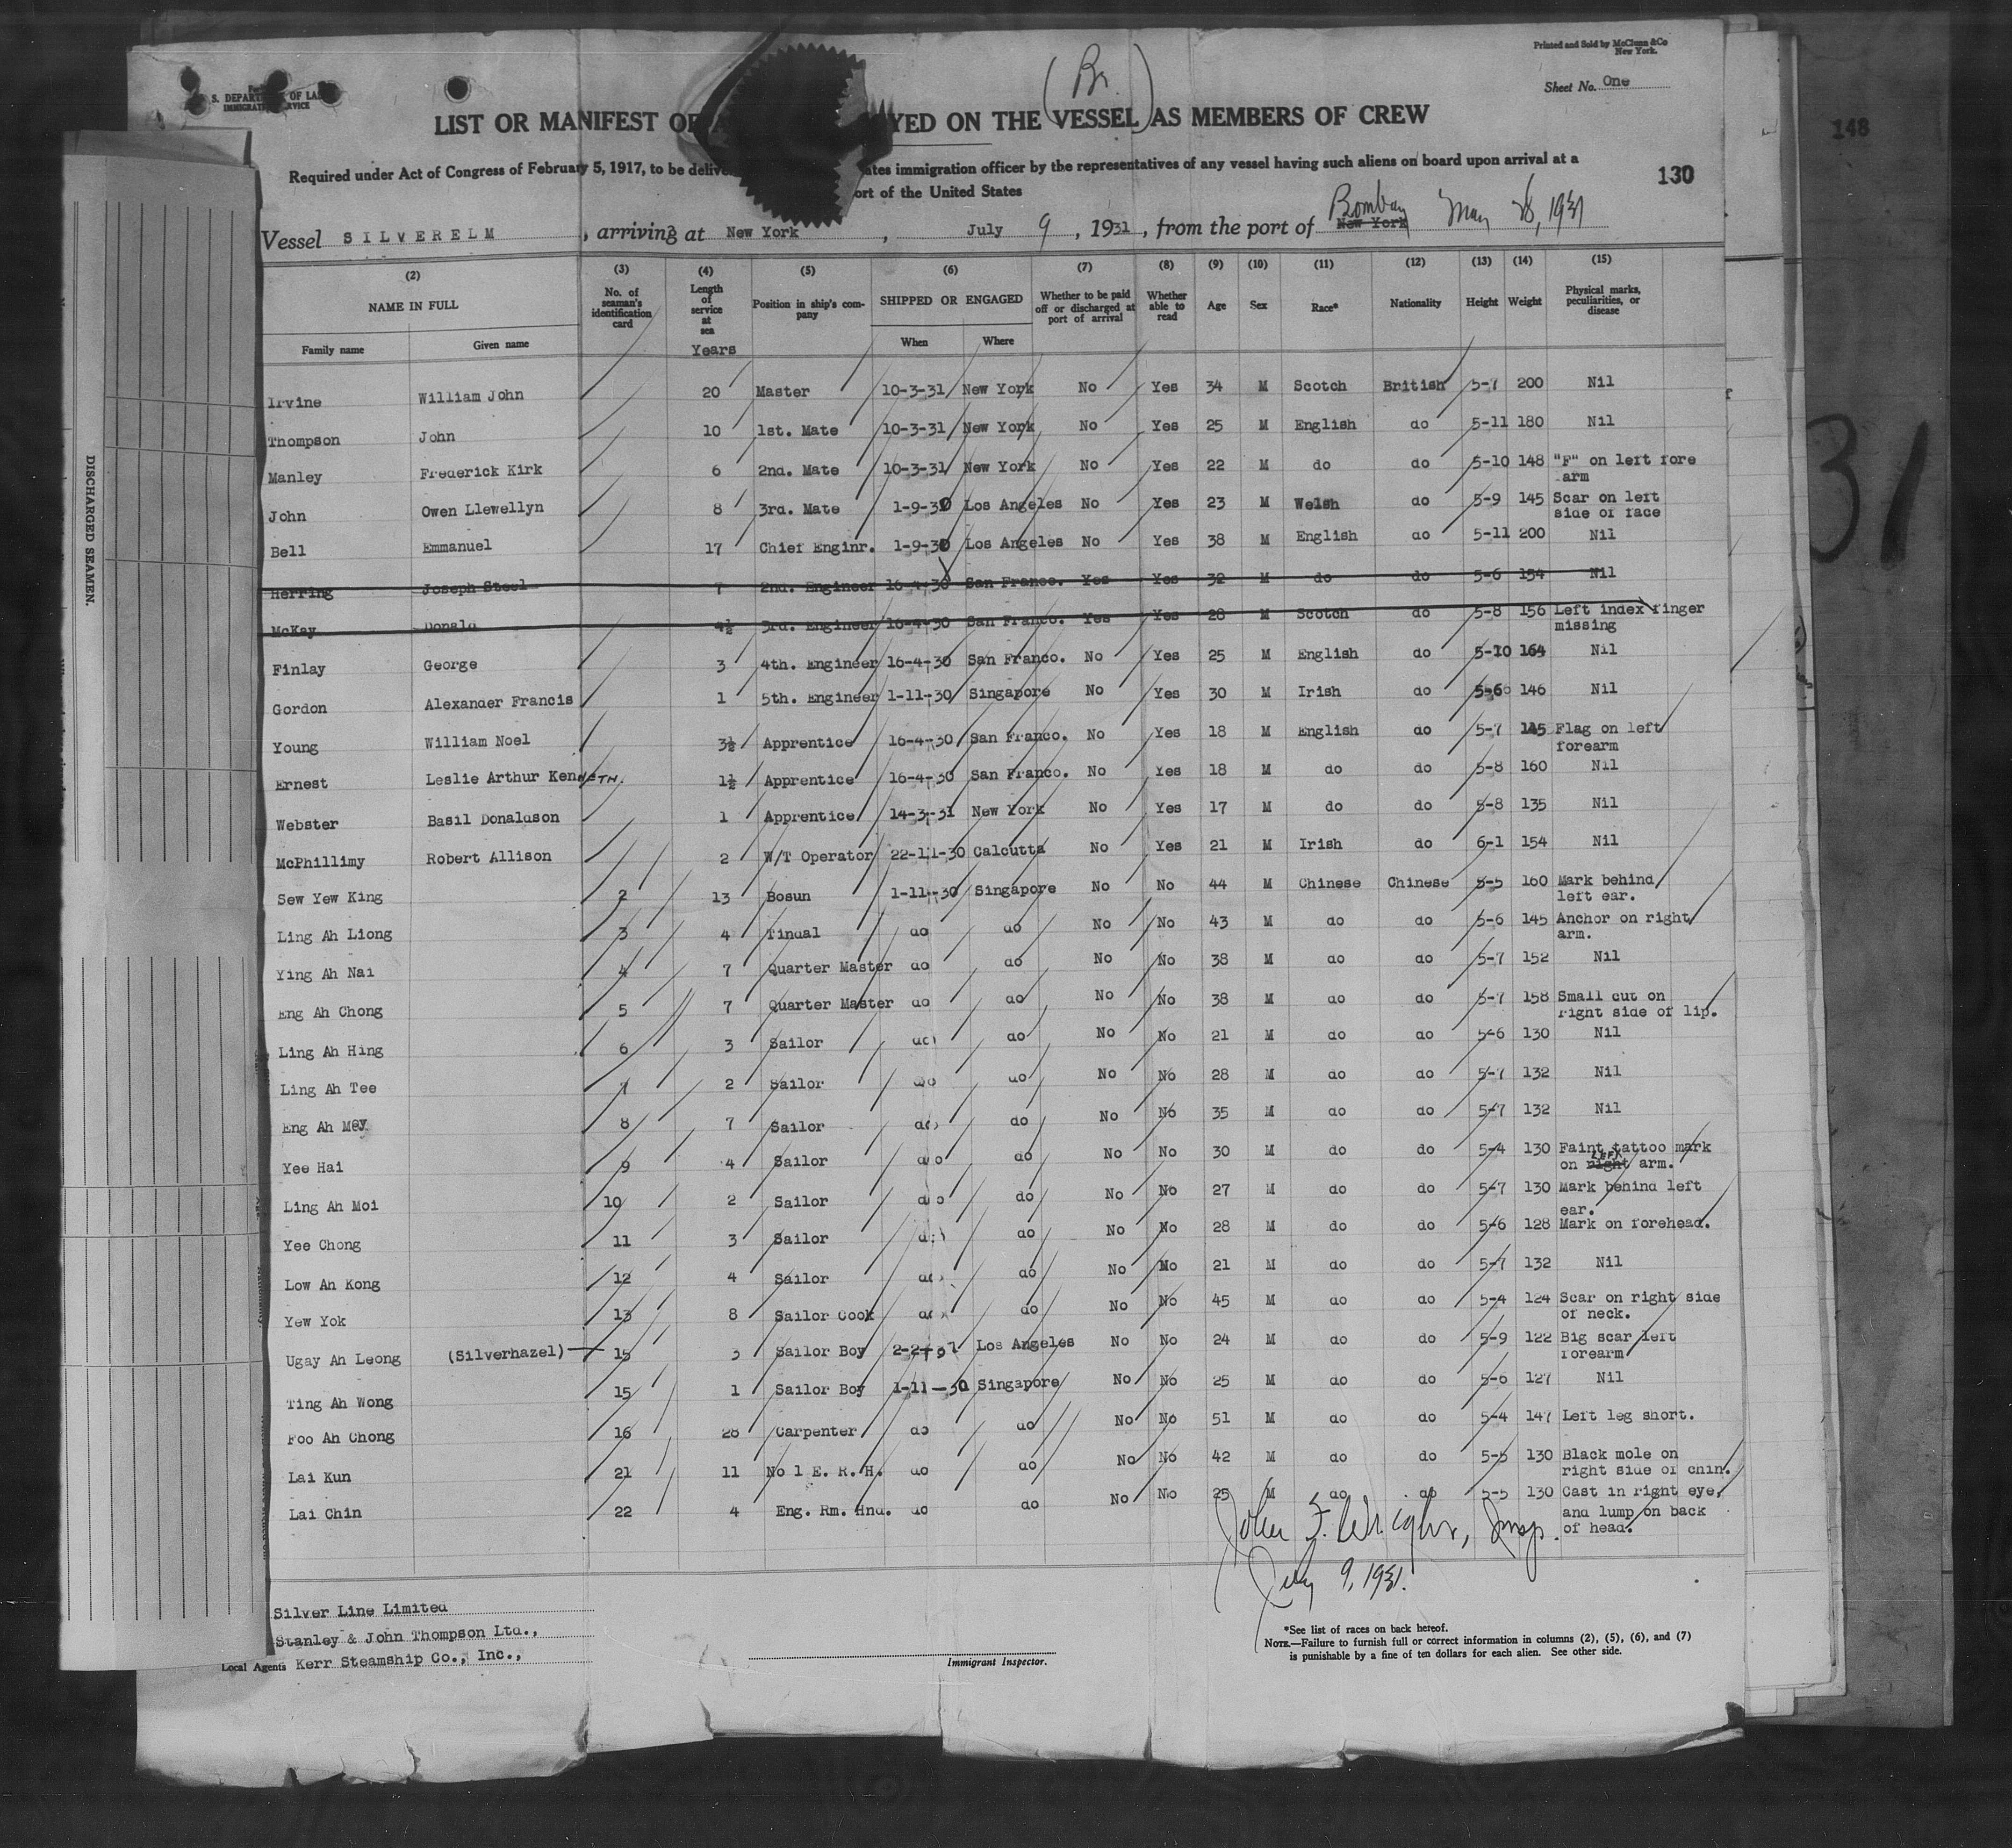 Printed and Sold by McClunn & Co
New York.
Sheet No. One
S. DEPARTMENT OF LA
IMMIGRATION SERVICE
(Br.)
LIST OR MANIFEST OF A YED ON THE VESSEL AS MEMBERS OF CREW
148
Required under Act of Congress of February 5, 1917, to be delive ates immigration officer by the representatives of any vessel having such aliens on board upon arrival at a
ort of the United States
130
Vessel SILVERELM, arriving at New York, July 9, 1931, from the port of New York Bombay May 28, 1931
(2) (3) (4) (5) (6) (7) (8) (9) (10) (11) (12) (13) (14) (15)
NAME IN FULL No. of seaman's identification card Length of service at sea Position in ship's company SHIPPED OR ENGAGED Whether to be paid off or discharged at port of arrival Whether able to read Age Sex Race* Nationality Height Weight Physical marks, peculiarities, or disease
Family name Given name Years When Where
Irvine William John 20 Master 10-3-31 New York No Yes 34 M Scotch British 5-7 200 Nil
Thompson John 10 1st. Mate 10-3-31 New York No Yes 25 M English do 5-11 180 Nil
Manley Frederick Kirk 6 2nd. Mate 10-3-31 New York No Yes 22 M do do 5-10 148 "F" on left fore
arm
John Owen Llewellyn 8 3rd. Mate 1-9-30 Los Angeles No Yes 23 M Welsh do 5-9 145 Scar on left
side of face
Bell Emmanuel 17 Chief Enginr. 1-9-30 Los Angeles No Yes 38 M English do 5-11 200 Nil
Herring Joseph Steel 7 2nd. Engineer 16-4-30 San Franco. Yes Yes 32 M do do 5-6 154 Nil
McKay Donald 4½ 3rd. Engineer 16-4-30 San Franco. Yes Yes 28 M Scotch do 5-8 156 Left index finger
missing
Finlay George 3 4th. Engineer 16-4-30 San Franco. No Yes 25 M English do 5-10 164 Nil
Gordon Alexander Francis 1 5th. Engineer 1-11-30 Singapore No Yes 30 M Irish do 5-6 146 Nil
Young William Noel 3½ Apprentice 16-4-30 San Franco. No Yes 18 M English do 5-7 145 Flag on left
forearm
Ernest Leslie Arthur KenNETH. 1½ Apprentice 16-4-30 San Franco. No Yes 18 M do do 5-8 160 Nil
Webster Basil Donaldson 1 Apprentice 14-3-31 New York No Yes 17 M do do 5-8 135 Nil
McPhillimy Robert Allison 2 W/T Operator 22-11-30 Calcutta No Yes 21 M Irish do 6-1 154 Nil
Sew Yew King 2 13 Bosun 1-11-30 Singapore No No 44 M Chinese Chinese 5-5 160 Mark behind
left ear.
Ling Ah Liong 3 4 Tindal do do No No 43 M do do 5-6 145 Anchor on right
arm.
Ying Ah Nai 4 7 Quarter Master do do No No 38 M do do 5-7 152 Nil
Eng Ah Chong 5 7 Quarter Master do do No No 38 M do do 5-7 158 Small cut on
right side of lip.
Ling Ah Hing 6 3 Sailor do do No No 21 M do do 5-6 130 Nil
Ling Ah Tee 7 2 Sailor do do No No 28 M do do 5-7 132 Nil
Eng Ah Mey 8 7 Sailor do do No No 35 M do do 5-7 132 Nil
Yee Hai 9 4 Sailor do do No No 30 M do do 5-4 130 Faint tattoo mark
on right LEFT arm.
Ling Ah Moi 10 2 Sailor do do No No 27 M do do 5-7 130 Mark behind left
ear.
Yee Chong 11 3 Sailor do do No No 28 M do do 5-6 128 Mark on forehead.
Low Ah Kong 12 4 Sailor do do No No 21 M do do 5-7 132 Nil
Yew Yok 13 8 Sailor Cook do do No No 45 M do do 5-4 124 Scar on right side
of neck.
Ugay Ah Leong (Silverhazel) 15 3 Sailor Boy 2-2-31 Los Angeles No No 24 M do do 5-9 122 Big scar left
forearm
Ting Ah Wong 15 1 Sailor Boy 1-11-30 Singapore No No 25 M do do 5-6 127 Nil
Foo Ah Chong 16 28 Carpenter do do No No 51 M do do 5-4 147 Left leg short.
Lai Kun 21 11 No 1 E. R. H. do do No No 42 M do do 5-5 130 Black mole on
right side of chin.
Lai Chin 22 4 Eng. Rm. Hnd. do do No No 25 M do do 5-5 130 Cast in right eye,
and lump on back
of head.
John F. Wright, Insp.
July 9, 1931.
DISCHARGED SEAMEN.
31
Silver Line Limited
Stanley & John Thompson Ltd.,
Local Agents Kerr Steamship Co., Inc.,
Immigrant Inspector.
*See list of races on back hereof.
NOTE.—Failure to furnish full or correct information in columns (2), (5), (6), and (7)
is punishable by a fine of ten dollars for each alien. See other side.